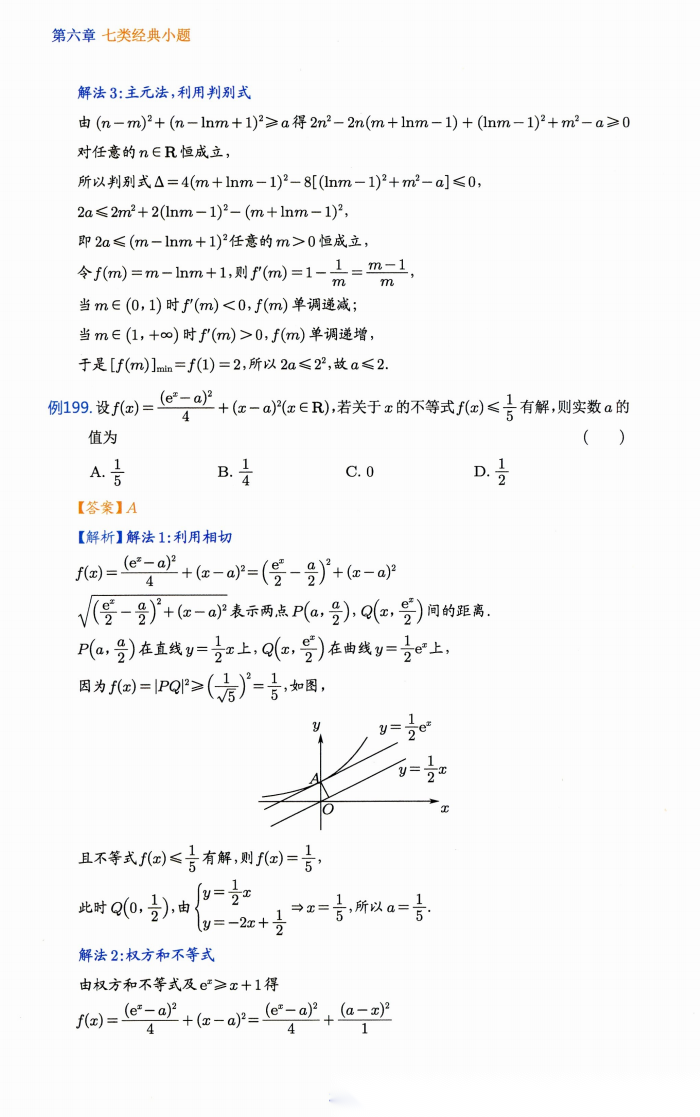 第六章 七类经典小题
解法3:主元法,利用判别式
由 (n－m)²＋(n－lnm＋1)²≥a 得 2n²－2n(m＋lnm－1)＋(lnm－1)²＋m²－a≥0
对任意的 n∈R 恒成立，
所以判别式 Δ＝4(m＋lnm－1)²－8[(lnm－1)²＋m²－a]≤0，
2a≤2m²＋2(lnm－1)²－(m＋lnm－1)²，
即 2a≤(m－lnm＋1)²任意的 m>0 恒成立，
令 f(m)＝m－lnm＋1,则 f′(m)＝1－1/m＝(m－1)/m，
当 m∈(0,1) 时 f′(m)<0,f(m) 单调递减；
当 m∈(1,+∞) 时 f′(m)>0,f(m) 单调递增，
于是 [f(m)]min＝f(1)＝2,所以 2a≤2²,故 a≤2.
例199. 设 f(x)＝(eˣ－a)²/4＋(x－a)²(x∈R),若关于 x 的不等式 f(x)≤1/5 有解,则实数 a 的
值为 ( )
A. 1/5 B. 1/4 C. 0 D. 1/2
【答案】A
【解析】解法1:利用相切
f(x)＝(eˣ－a)²/4＋(x－a)²＝(eˣ/2－a/2)²＋(x－a)²
√((eˣ/2－a/2)²＋(x－a)²) 表示两点 P(a, a/2), Q(x, eˣ/2) 间的距离.
P(a, a/2) 在直线 y＝1/2x 上, Q(x, eˣ/2) 在曲线 y＝1/2eˣ 上，
因为 f(x)＝|PQ|²≥(1/√5)²＝1/5,如图，
y
y＝1/2eˣ
y＝1/2x
A
O
x
且不等式 f(x)≤1/5 有解,则 f(x)＝1/5，
此时 Q(0, 1/2),由 {y＝1/2x
y＝－2x＋1/2 ⇒x＝1/5,所以 a＝1/5.
解法2:权方和不等式
由权方和不等式及 eˣ≥x＋1 得
f(x)＝(eˣ－a)²/4＋(x－a)²＝(eˣ－a)²/4＋(a－x)²/1